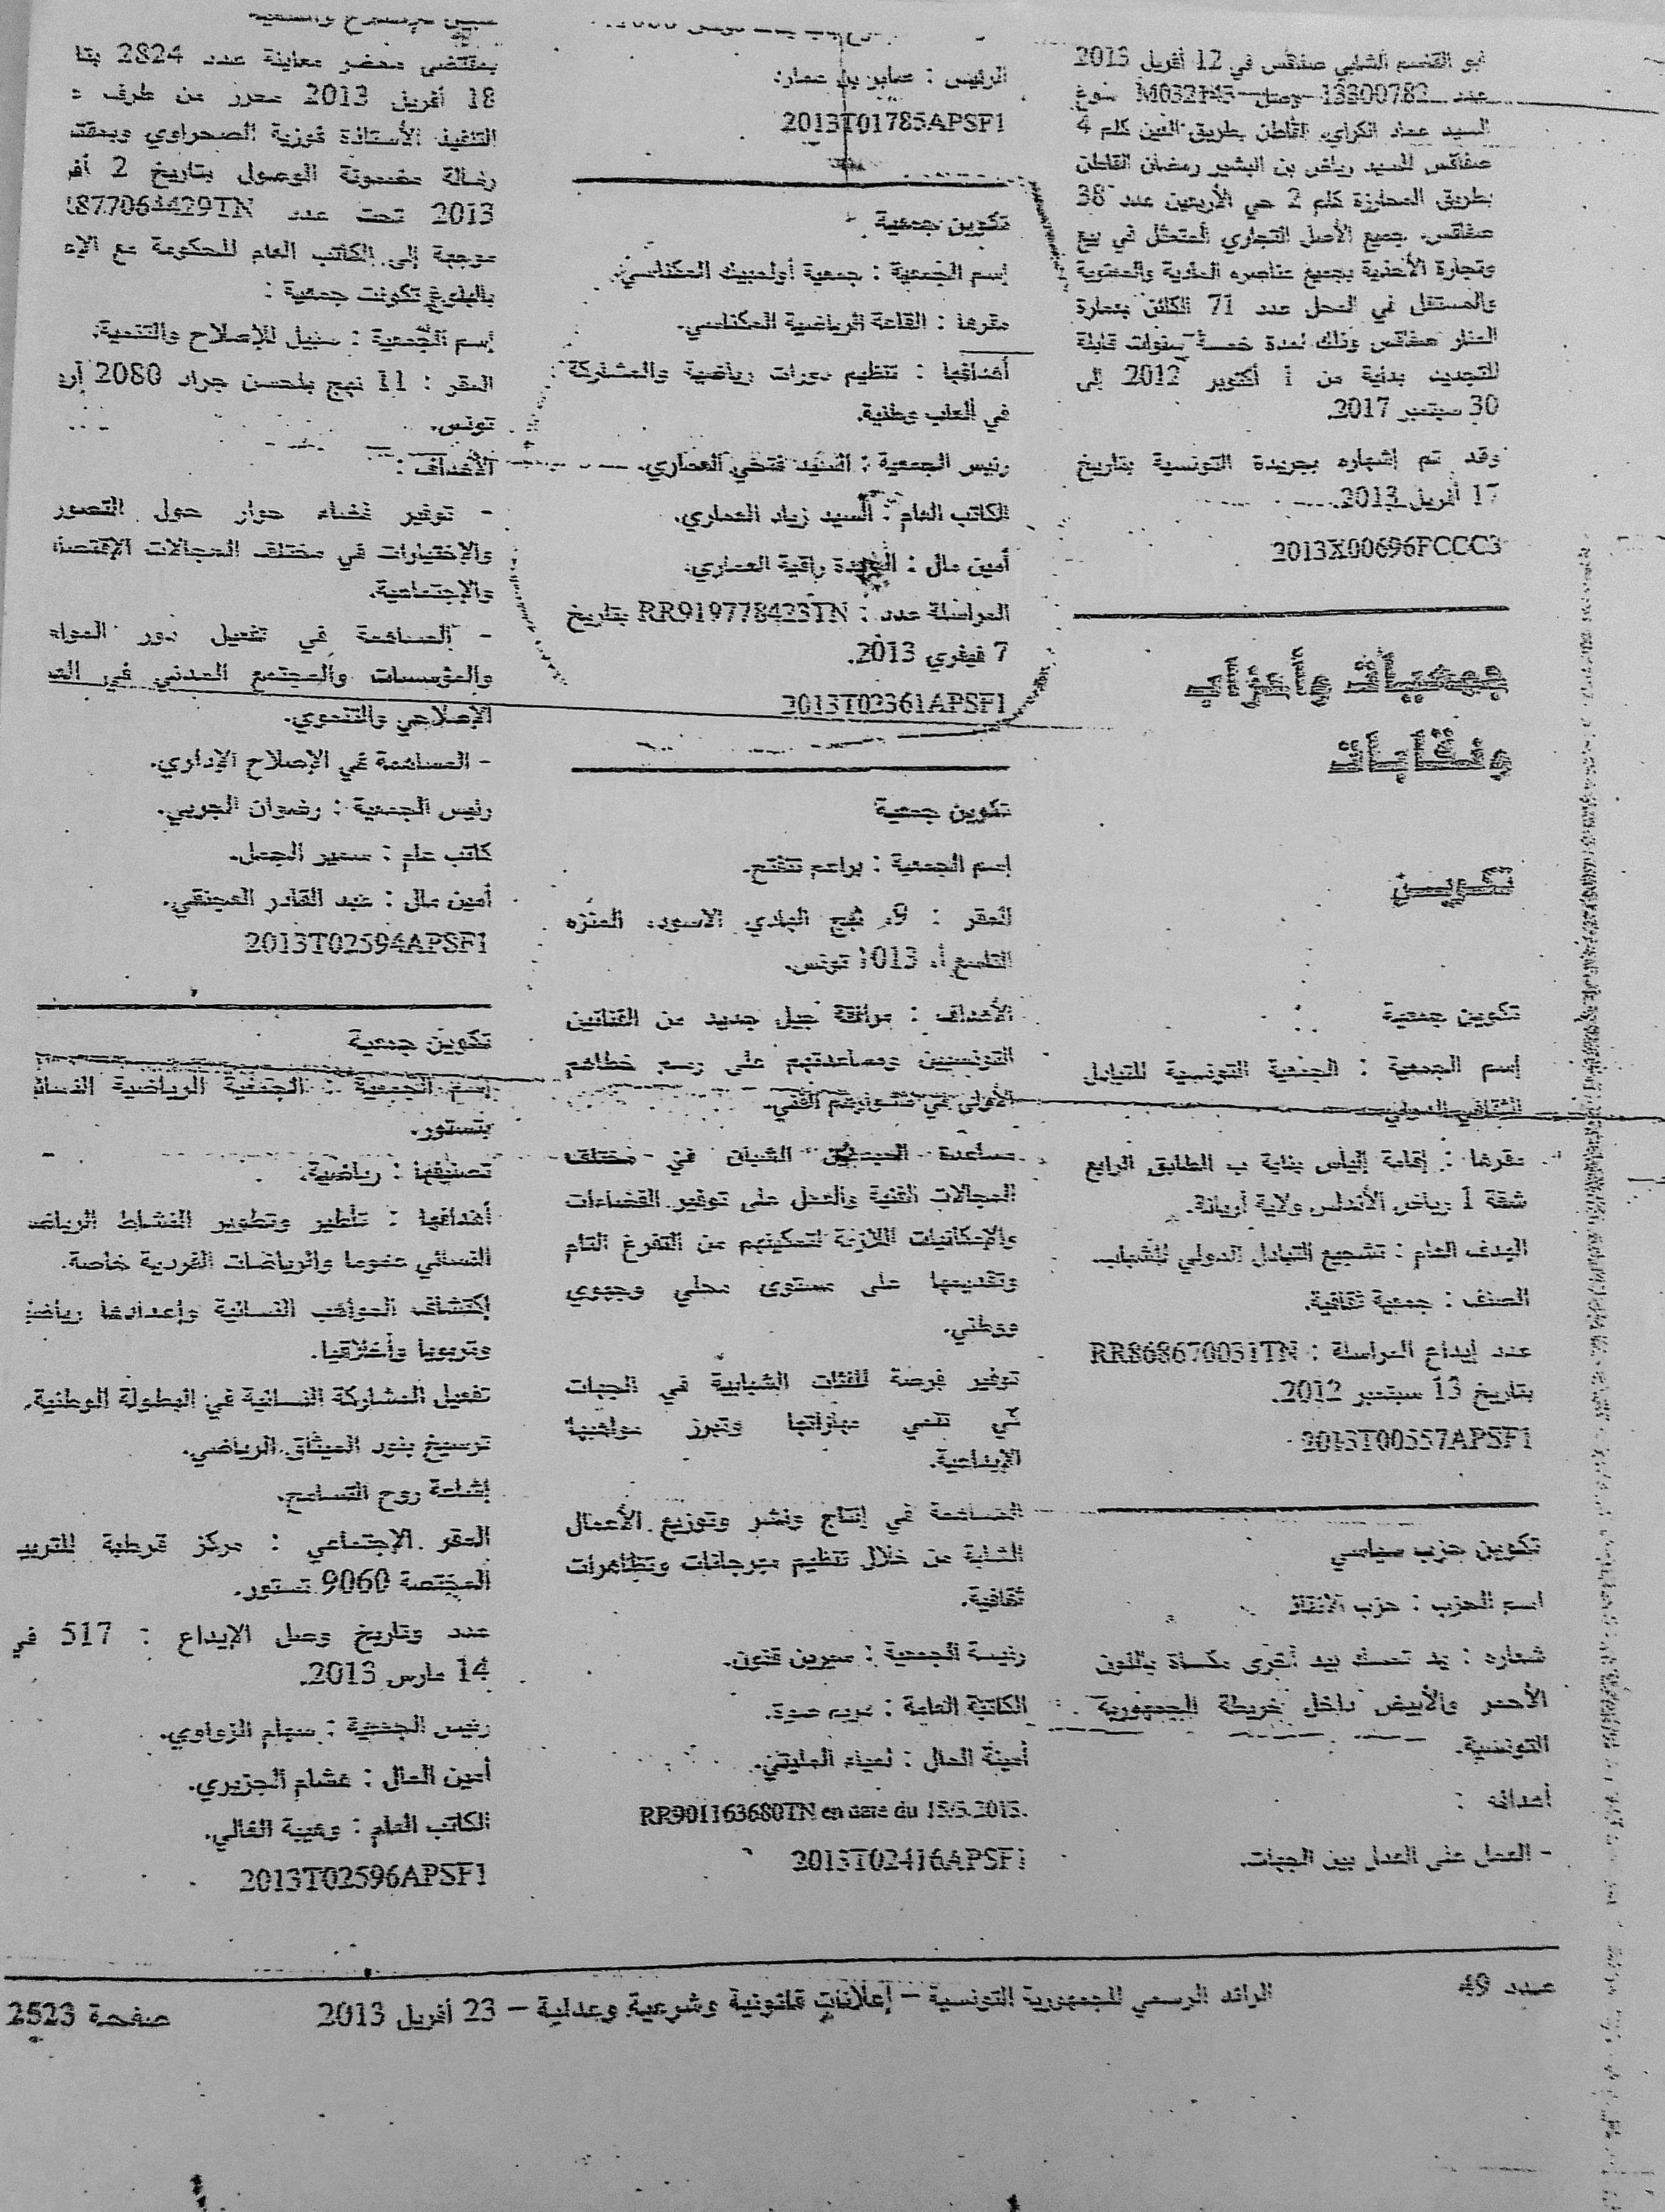 أبو القاسم الشابي صفاقس في 12 أفريل 2013
عدد 13300782 وصل M032143 سوغ
السيد عماد الكراي القاطن بطريق العين كلم 4
صفاقس للسيد رياض بن البشير رمضان القاطن
بطريق المحارزة كلم 2 حي الأربعين عدد 38
صفاقس. جميع الأصل التجاري المتمثل في بيع
وتجارة الأحذية بجميع عناصره المادية والمعنوية
والمستغل في المحل عدد 71 الكائن بعمارة
المنار صفاقس وذلك لمدة خمسة سنوات قابلة
للتجديد بداية من 1 أكتوبر 2012 إلى
30 سبتمبر 2017.
وقد تم إشهاره بجريدة التونسية بتاريخ
17 أفريل 2013.
2013X00696FCCC3
جمعيات وأحزاب
ونقابات
تكوين
تكوين جمعية
إسم الجمعية : الجمعية التونسية للتبادل
الثقافي الدولي.
مقرها : إقامة إلياس بناية ب الطابق الرابع
شقة 1 رياض الأندلس ولاية أريانة.
الهدف العام : تشجيع التبادل الدولي للشباب.
الصنف : جمعية ثقافية.
عدد إيداع المراسلة : RR868670031TN
بتاريخ 13 سبتمبر 2012.
2013T00557APSF1
تكوين حزب سياسي
اسم الحزب : حزب الانقاذ
شعاره : يد تمسك بيد أخرى مكساة باللون
الأحمر والأبيض داخل خريطة الجمهورية
التونسية.
أهدافه :
- العمل على العدل بين الجهات.
الرئيس : صابر بن عمار.
2013T01785APSF1
تكوين جمعية
إسم الجمعية : جمعية أولمبيك المكناسي.
مقرها : القاعة الرياضية المكناسي.
أهدافها : تنظيم دورات رياضية والمشاركة
في ألعاب وطنية.
رئيس الجمعية : السيد فتحي العماري.
الكاتب العام : السيد زياد العماري.
أمين مال : السيدة راقية العماري.
المراسلة عدد : RR919778423TN بتاريخ
7 فيفري 2013.
2013T02361APSF1
تكوين جمعية
إسم الجمعية : براعم تتفتح.
المقر : 9، نهج الهادي الاسود، المنزه
التاسع أ، 1013 تونس.
الأهداف : مرافقة جيل جديد من الفنانين
التونسيين ومساعدتهم على رسم خطاهم
الأولى في مشوارهم الفني.
مساعدة المبدعين الشبان في مختلف
المجالات الفنية والعمل على توفير الفضاءات
والإمكانيات اللازمة لتمكينهم من التفرغ التام
وتقديمها على مستوى محلي وجهوي
ووطني.
توفير فرصة للفئات الشبابية في الجهات
كي تنمي مهاراتها وتبرز مواهبها
الإبداعية.
المساهمة في إنتاج ونشر وتوزيع الأعمال
الشابة من خلال تنظيم مهرجانات وتظاهرات
ثقافية.
رئيسة الجمعية : سيرين قنون.
الكاتبة العامة : مريم
أمينة المال : لمياء المليتي.
RR901163680TN en date du 15/3.2013.
2013T02416APSF1
سبيل للإصلاح والتنمية
بمقتضى محضر معاينة عدد 2824 بتا
18 أفريل 2013 محرر من طرف
التنفيذ الأستاذة فوزية الصحراوي وبمقت
رسالة مضمونة الوصول بتاريخ 2 أفر
2013 تحت عدد 1877064429TN
موجهة إلى الكاتب العام للحكومة مع الإ
بالبلوغ تكونت جمعية :
إسم الجمعية : سبيل للإصلاح والتنمية.
المقر : 11 نهج بلحسن جراد 2080 أر
تونس.
الأهداف :
- توفير فضاء حوار حول التصور
والإختيارات في مختلف المجالات الإقتصا
والإجتماعية.
- المساهمة في تفعيل دور المواه
والمؤسسات والمجتمع المدني في الم
الإصلاحي والتنموي.
- المساهمة في الإصلاح الإداري.
رئيس الجمعية : رضوان الجربي.
كاتب عام : سمير الجمل.
أمين مال : عبد القادر
2013T02594APSF1
تكوين جمعية
إسم الجمعية : الجمعية الرياضية النسائ
بتستور.
تصنيفها : رياضية.
أهدافها : تأطير وتطوير النشاط الرياض
النسائي عموما والرياضات الفردية خاصة.
إكتشاف المواهب النسائية وإعدادها رياض
وتربويا وأخلاقيا.
تفعيل المشاركة النسائية في البطولة الوطنية.
ترسيخ بنود الميثاق الرياضي.
إشاعة روح التسامح.
المقر الإجتماعي : مركز قرطبة للتربي
المختصة 9060 تستور.
عدد وتاريخ وصل الإيداع : 517 في
14 مارس 2013.
رئيس الجمعية : سهام الزواوي.
أمين المال : هشام الجزيري.
الكاتب العام : وهيبة الغالي.
2013T02596APSF1
عدد 49
الرائد الرسمي للجمهورية التونسية – إعلانات قانونية وشرعية وعدلية – 23 أفريل 2013
صفحة 2523